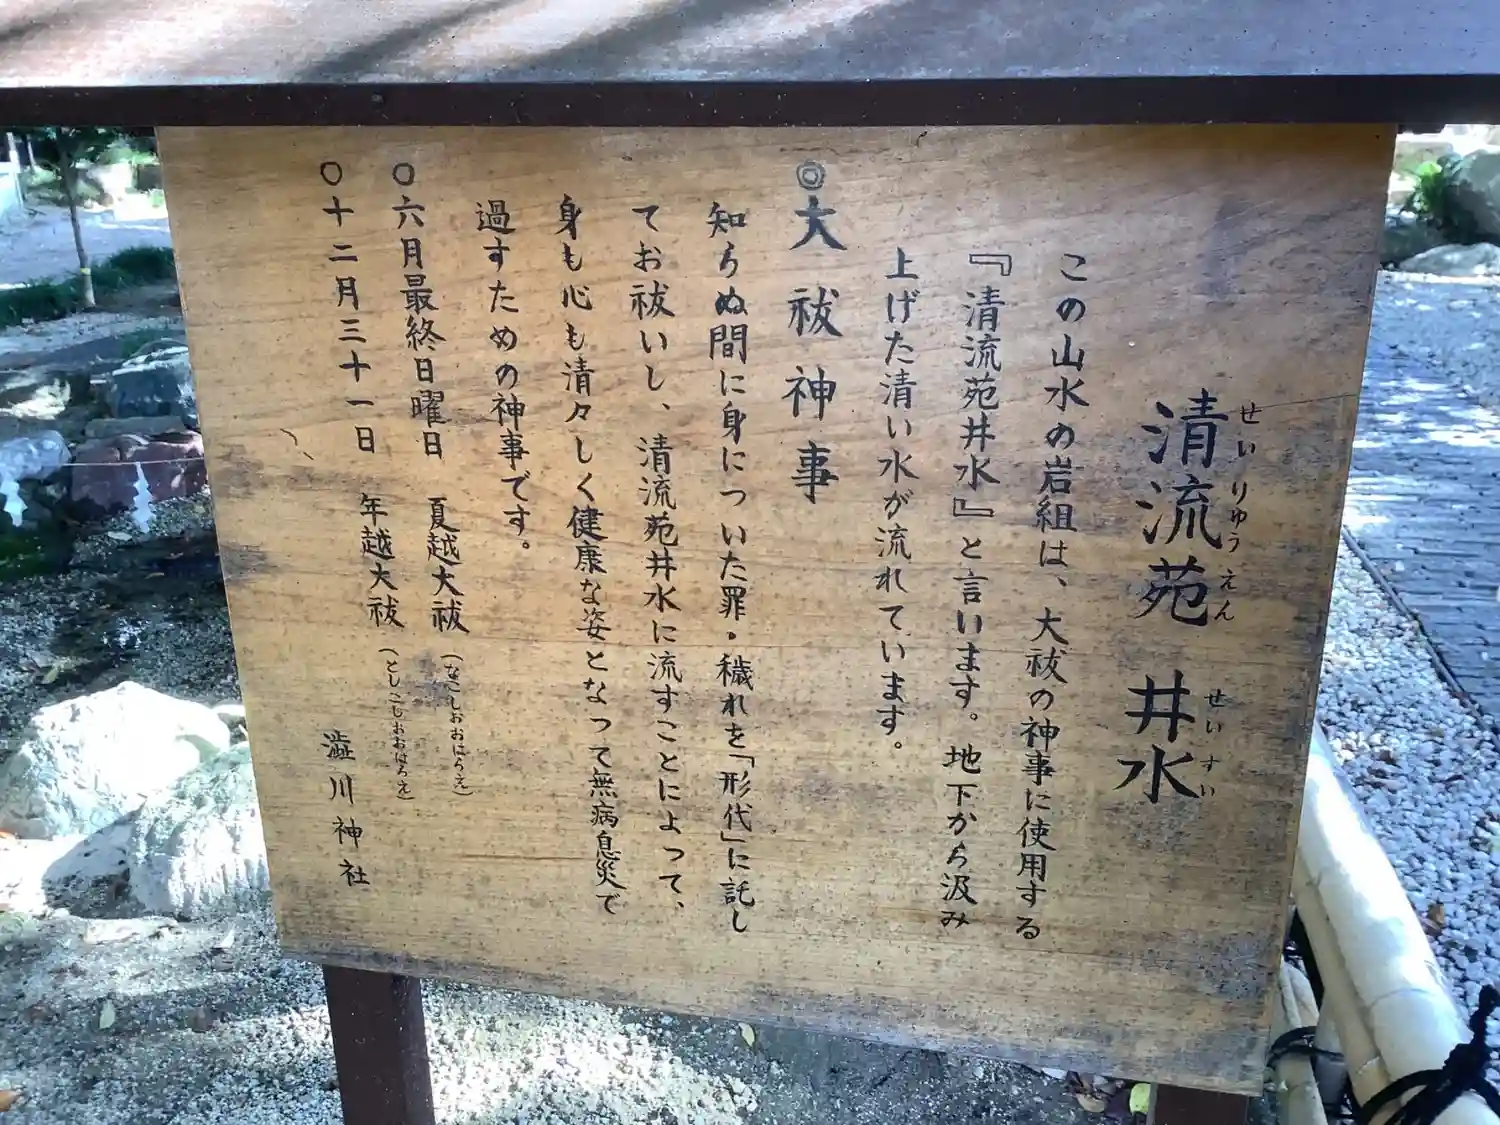 清流苑 井水
せいりゅうえん せいすい
この山水の岩組は、大祓の神事に使用する
『清流苑井水』と言います。地下から汲み
上げた清い水が流れています。
◎大祓神事
知らぬ間に身についた罪・穢れを「形代」に託し
てお祓いし、清流苑井水に流すことによって、
身も心も清々しく健康な姿となって無病息災で
過すための神事です。
○六月最終日曜日 夏越大祓(なごしおおはらえ)
○十二月三十一日 年越大祓(としこしおおはらえ)
澁川神社